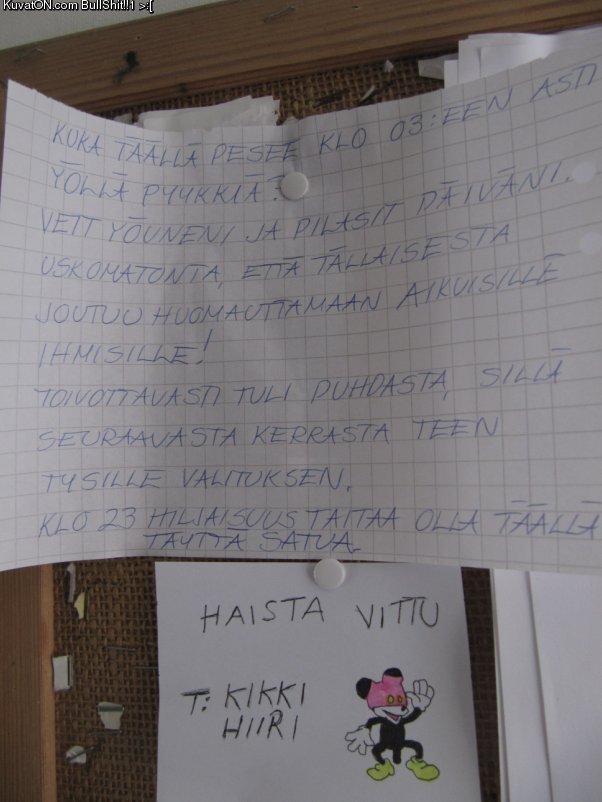 KuvatON.com BullShit!!1 >:[
KUKA TÄÄLLÄ PESEE KLO 03:EEN ASTI
YÖLLÄ PYYKKIÄ?
VEIT YÖUNENI JA PILASIT PÄIVÄNI.
USKOMATONTA, ETTÄ TÄLLAISESTA
JOUTUU HUOMAUTTAMAAN AIKUISILLE
IHMISILLE!
TOIVOTTAVASTI TULI PUHDASTA, SILLÄ
SEURAAVASTA KERRASTA TEEN
TYSILLE VALITUKSEN.
KLO 23 HILJAISUUS TAITAA OLLA TÄÄLLÄ
TÄYTTÄ SATUA.
HAISTA VITTU
T: KIKKI
HIIRI